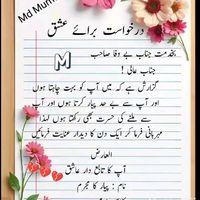 Md Mum
درخواست برائے عشق
بخدمت جناب بے وفا صاحب
M
جناب عالی !
گزارش ہے کہ میں آپ کو بہت چاہتا ہوں
اور آپ سے بے حد پیار کرتا ہوں اور آپ
سے ملنے کی حسرت بھی رکھتا ہوں لہذا
مہربانی فرما کر ایک دن کا دیدار عنایت فرمائیں
العارض
آپ کا تابع دار عاشق
نام : پیار کا مجرم